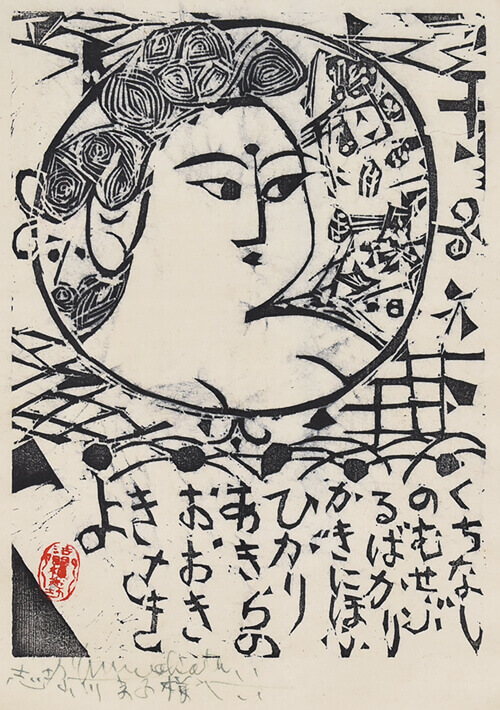 くちなし
のむせぶ
るばかり
かぎにほふ
ひかり
あきらの
おおき
きさき
よ